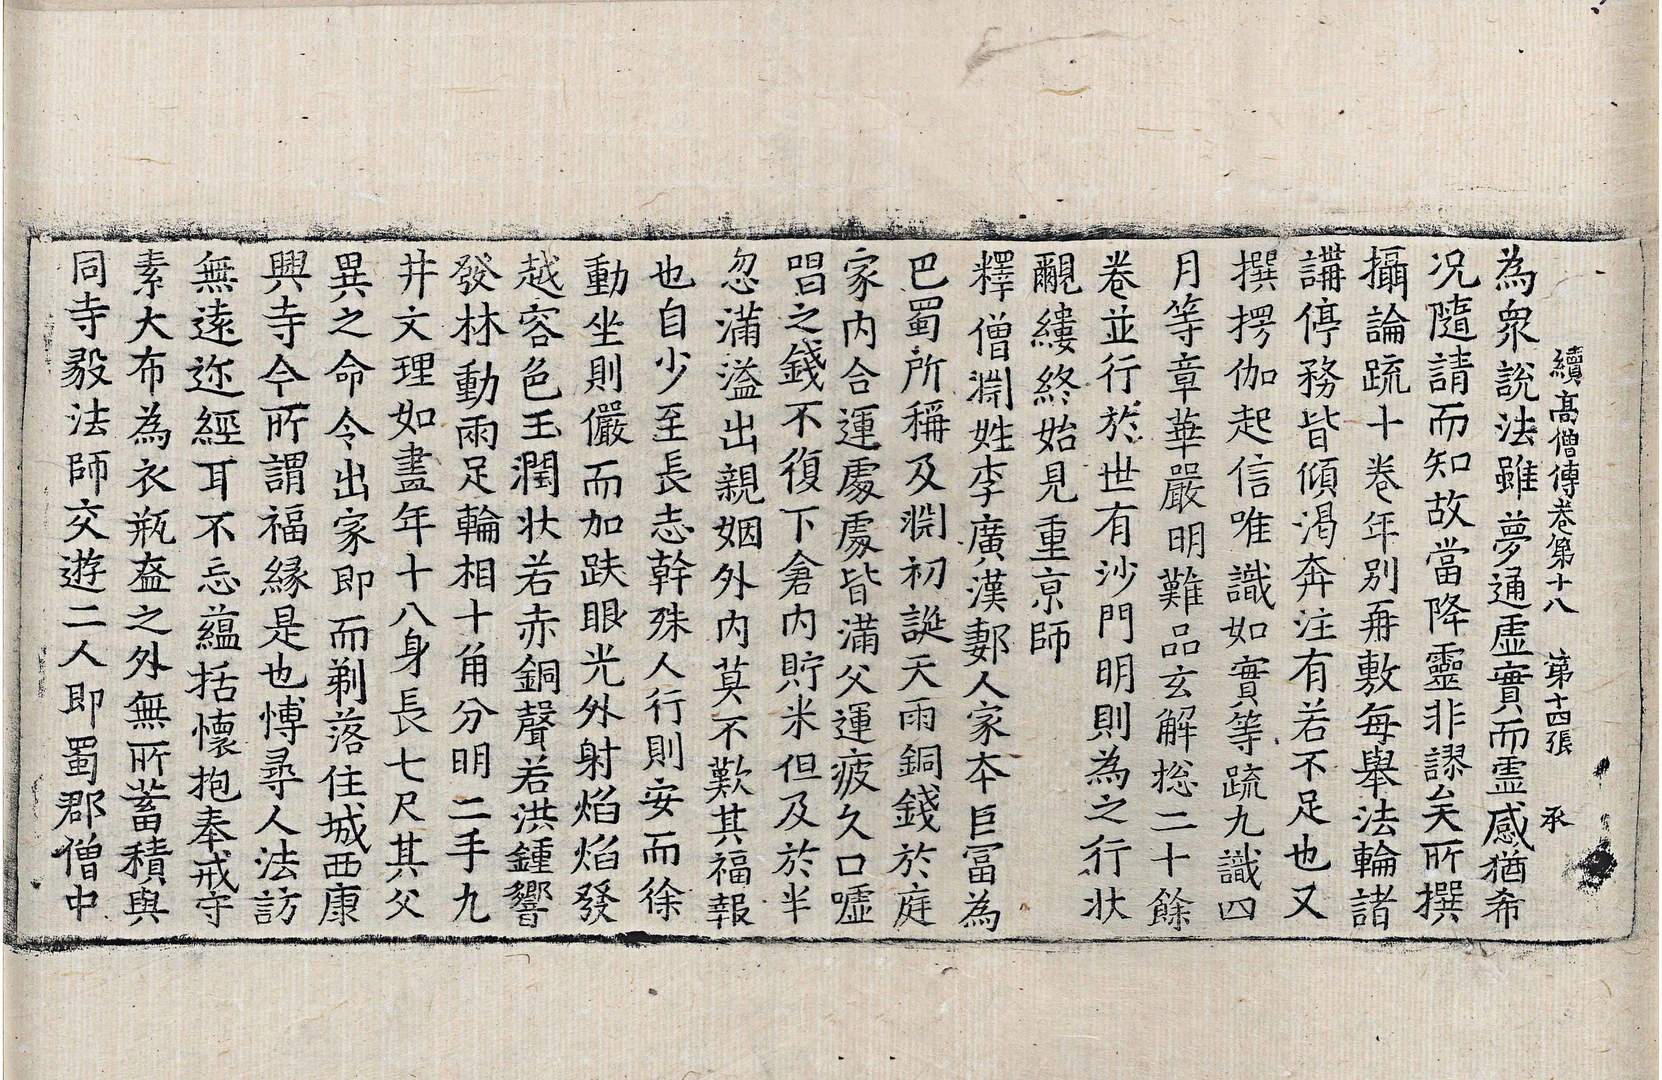 續高僧傳卷第十八　第十四張　承
為衆說法雖夢通虛實而霊感猶希
况隨請而知故當降靈非謬矣所撰
攝論䟽十卷年別再敷每舉法輪諸
講停務皆傾渴奔注有若不足也又
撰楞伽起信唯識如實等䟽九識四
月等章華嚴明難品玄解揔二十餘
卷並行於世有沙門明則為之行狀
覼縷終始見重京師
釋僧淵姓李廣漢郪人家本巨冨為
巴蜀所稱及淵初誕天雨銅錢於庭
家內合運處處皆滿父運疲久口噓
唱之錢不復下倉內貯米但及於半
忽滿溢出親姻外內莫不歎其福報
也自少至長志幹殊人行則安而徐
動坐則儼而加趺眼光外射焰焰發
越容色玉潤狀若赤銅聲若洪鍾響
發林動雨足輪相十角分明二手九
井文理如畫年十八身長七尺其父
異之命令出家即而剃落住城西康
興寺今所謂福緣是也愽尋人法訪
無遠迩經耳不忘蘊括懷抱奉戒守
素大布為衣瓶盔之外無所蓄積與
同寺毅法師交遊二人即蜀郡僧中